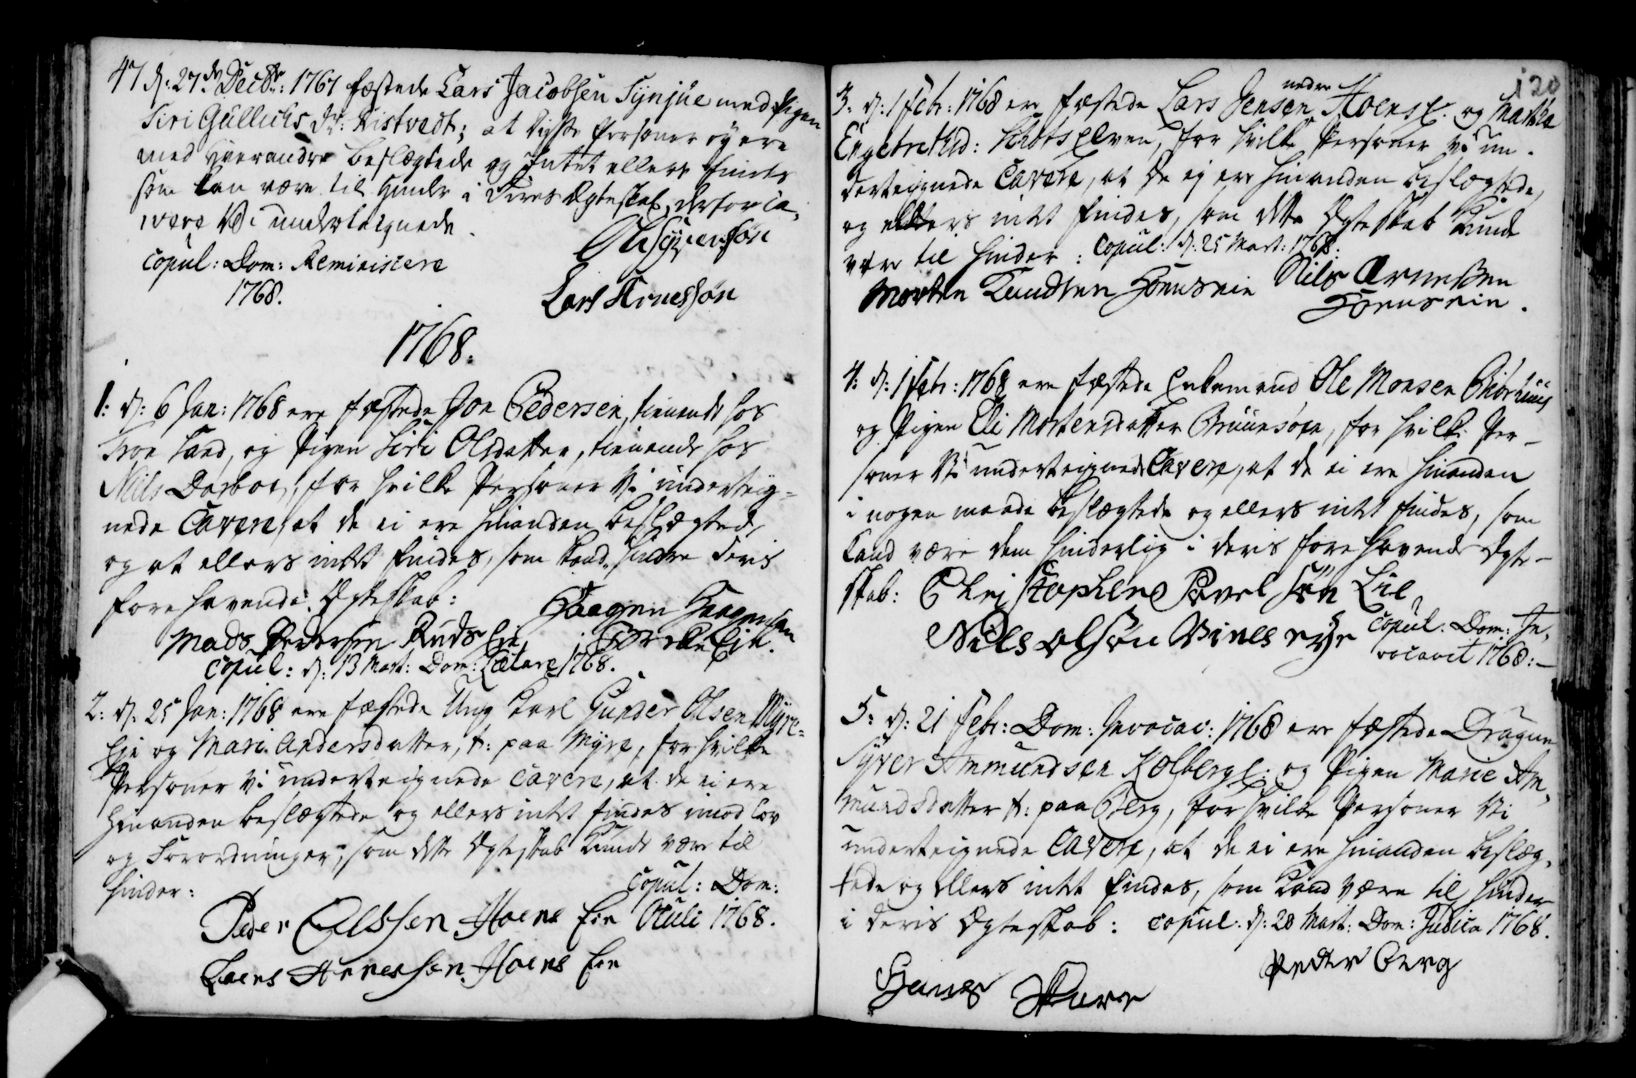 47 d: 27de Decbr: 1767 fæstede Lars Jacobsen Synjue med Pigen
Siri Gullichs Dr: Kistvedt; at disse Personer ey ere
med hverandre beslægtede og Intet ellers findes
som kan være til hinder i deres Ægteskab, derfor ca-
were Vi undertægnede.
Copul: Dom: Reminiscere
1768.
Lars Arnessøn
1768.
1: d: 6 Jan: 1768 ere fæstede Jon Pedersen, tienende hos
Land, og Pigen Siri Olsdatter, tienende hos
Nils Dorboe, for hvilke Personer Vi underteig-
nede Cavere, at de ei ere hinanden beslægtede,
og at ellers intet findes, som kand hindre deris
forehavende Ægteskab:
Haagen Haagensen
Mads Pedersen Ruds Eie
Copul: d: 13 Mart: Dom: Lætare 1768.
2: d: 25 Jan: 1768 ere fæstede Ung Karl Gunder Olsen Myre-
Eie og Mari Andersdatter, t: paa Myre, for hvilke
Personer Vi underteignede Cavere, at de ei ere
hinanden beslægtede og ellers intet findes imod Lov
og Forordninger, som dette Ægteskab kunde være til
hinder:
Copul: Dom:
Oculi 1768.
Peder Olssen Hoens Eie
Laers Arnessen Hoens Eie
120
3: d: 1 Febr: 1768 ere fæstede Lars Jensen neder HoensE. og Martha
Engebrethsd: Krogselven, for hvilke Personer Vi un-
derteignede Cavere, at de ej ere hinanden beslægtede,
og ellers intet findes, som dette Ægteskab kunde
være til hinder: Copul: d: 25 Mart: 1768.
Morten Knudsen Hoenseie Nils Arnessen
Hoenseie.
4: d: 1 Febr: 1768 ere fæstede Enkemand Ole Monsen
og Pigen Eli Mortensdatter, for hvilke Per-
soner Vi underteignede Cavere, at de ei ere hinanden
i nogen maade beslægtede og ellers intet findes, som
kand være dem hinderlig i ders forehavende Ægte-
skab: Stophlene Povelsøn Lie
Niels olsøn Vineseye Copul: Dom: In-
vocavit 1768:-
5: d: 21 Febr: Dom: Invocav: 1768 ere fæstede Dragun
Syver Ammundsen KolbergE. og Pigen Marie Am-
mundsdatter t: paa Berg, for hvilke Personer Vi
underteignede Cavere, at de ei ere hinanden beslæg-
tede og ellers intet findes, som kand være til hinder
i deris Ægteskab: Copul: d: 20 Mart: Dom: Judica 1768.
Peder Berg
Hans